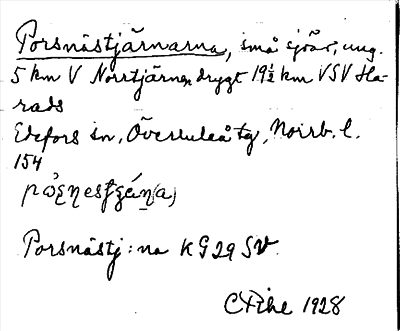 Porsnästjärnarna, små sjöar, ung.
5 km V Norrtjärnen, drygt 19½ km VSV Ha-
rads
Edefors sn, Överluleå tg, Norrb. l.
154
Porsnästj:na KG 29 SV.
1928